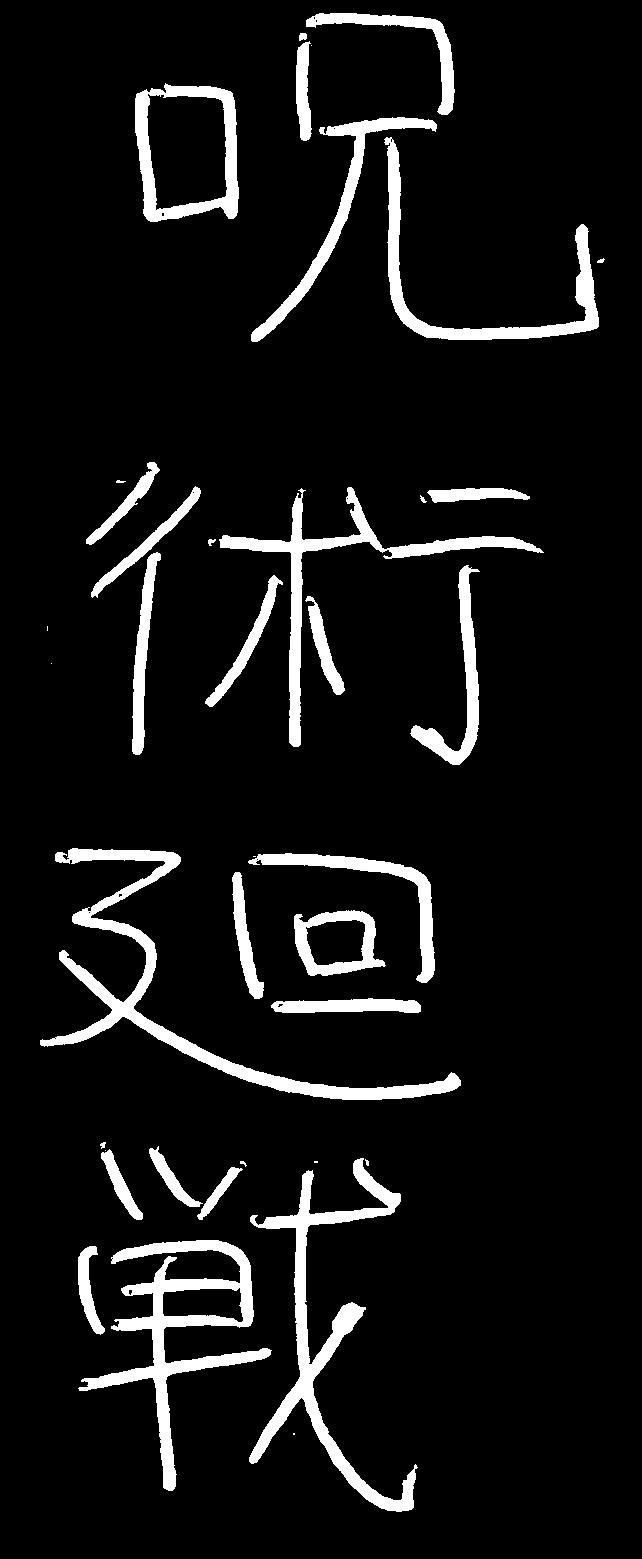 呪術廻戦